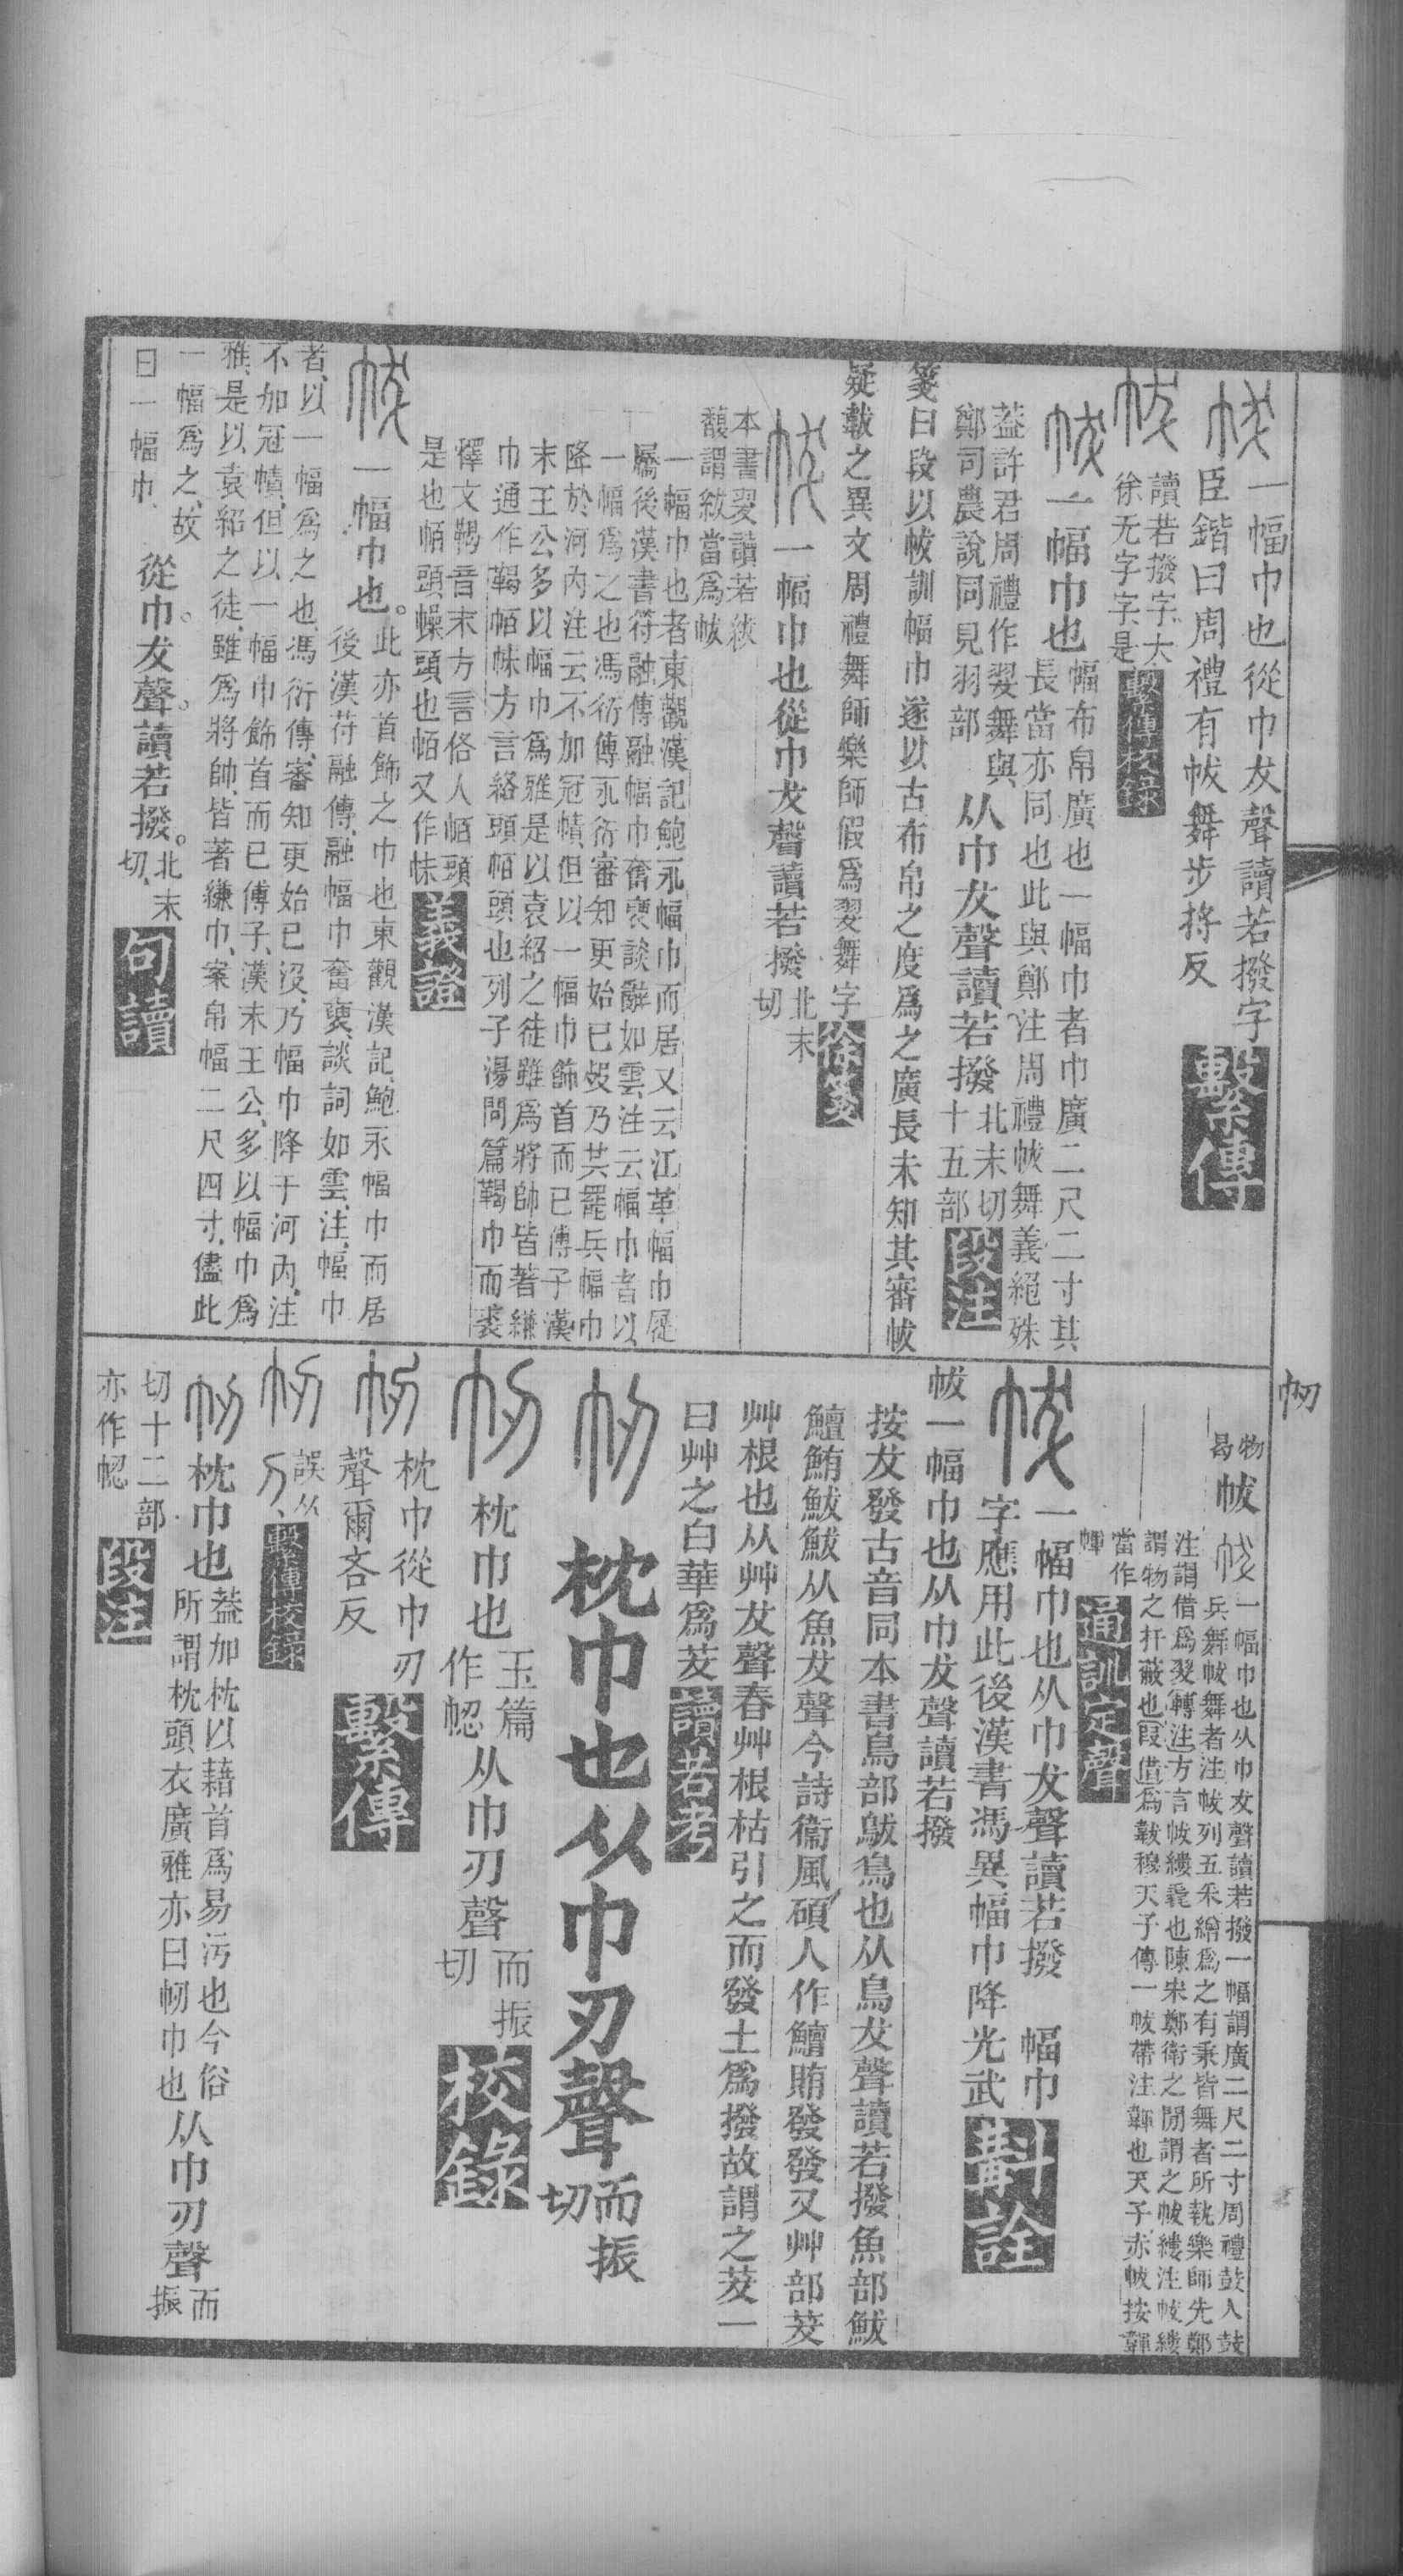 一幅巾也從巾犮聲讀若撥字
臣鍇曰周禮有帗舞步捋反
繫傳
讀若撥字大
徐无字字是
繫傳校錄
一幅巾也
幅布帛廣也一幅巾者巾廣二尺二寸其
長當亦同也此與鄭注周禮帗舞義絕殊
葢許君周禮作翇舞與
鄭司農說同見羽部
从巾犮聲讀若撥
北末切
十五部
段注
箋曰段以帗訓幅巾遂以古布帛之度爲之廣長未知其審帗
疑韍之異文周禮舞師樂師假爲翇舞字
徐箋
一幅巾也從巾犮聲讀若撥
北末
切
本書翇讀若紱
馥謂紱當爲帗
一幅巾也者東觀漢記鮑永幅巾而居又云江革幅巾屣
屩後漢書符融傳融幅巾奮褎談辭如雲注云幅巾者以
一幅爲之也馮衍傳永衍審知更始已歿乃共罷兵幅巾
降於河內注云不加冠幘但以一幅巾飾首而已傅子漢
末王公多以幅巾爲雅是以袁紹之徒雖爲將帥皆著縑
巾通作鞨帞帓方言絡頭帞頭也列子湯問篇鞨巾而裘
釋文鞨音末方言俗人帞頭
是也帞頭幧頭也帞又作帓
義證
一幅巾也。
此亦首飾之巾也東觀漢記、鮑永幅巾而居
後漢苻融傳、融幅巾奮褎、談詞如雲、注、幅巾
者、以一幅爲之也、馮衍傳、審知更始已沒、乃幅巾降于河內、注
不加冠幘、但以一幅巾飾首而已傅子、漢末王公、多以幅巾爲
雅、是以袁紹之徒、雖爲將帥、皆著縑巾、案帛幅二尺四寸、儘此
一幅爲之、故
曰一幅巾、
從巾。犮聲。讀若撥。
北末
切、
句讀
帗
一幅巾也从巾犮聲讀若撥一幅謂廣二尺二寸周禮鼓人鼓
兵舞帗舞者注帗列五采繒爲之有秉皆舞者所執樂師先鄭
注謂借爲翇轉注方言帗縷毳也陳宋鄭衛之閒謂之帗縷注帗縷
謂物之扞蔽也叚借爲韍穆天子傳一帗帶注韠也天子赤帗按韠
當作
通訓定聲
一幅巾也从巾犮聲讀若撥 幅巾
字應用此後漢書馮異幅巾降光武
斠詮
帗一幅巾也从巾犮聲讀若撥
按犮發古音同本書鳥部鴔鳥也从鳥犮聲讀若撥魚部鮁
鱣鮪鮁鮁从魚犮聲今詩衞風碩人作鱣鮪發發又艸部茇
艸根也从艸犮聲春艸根枯引之而發土爲撥故謂之茇一
曰艸之白華爲茇
讀若考
枕巾也从巾刃聲
而振
切
枕巾也
玉篇
作㡅
从巾刃聲
而振
切
校錄
枕巾從巾刃
聲爾吝反
繫傳
誤从
刀、
繫傳校錄
枕巾也
葢加枕以藉首爲易污也今俗
所謂枕頭衣廣雅亦曰㠴巾也
从巾刃聲
而
振
切十二部
亦作㡅
段注
㠴